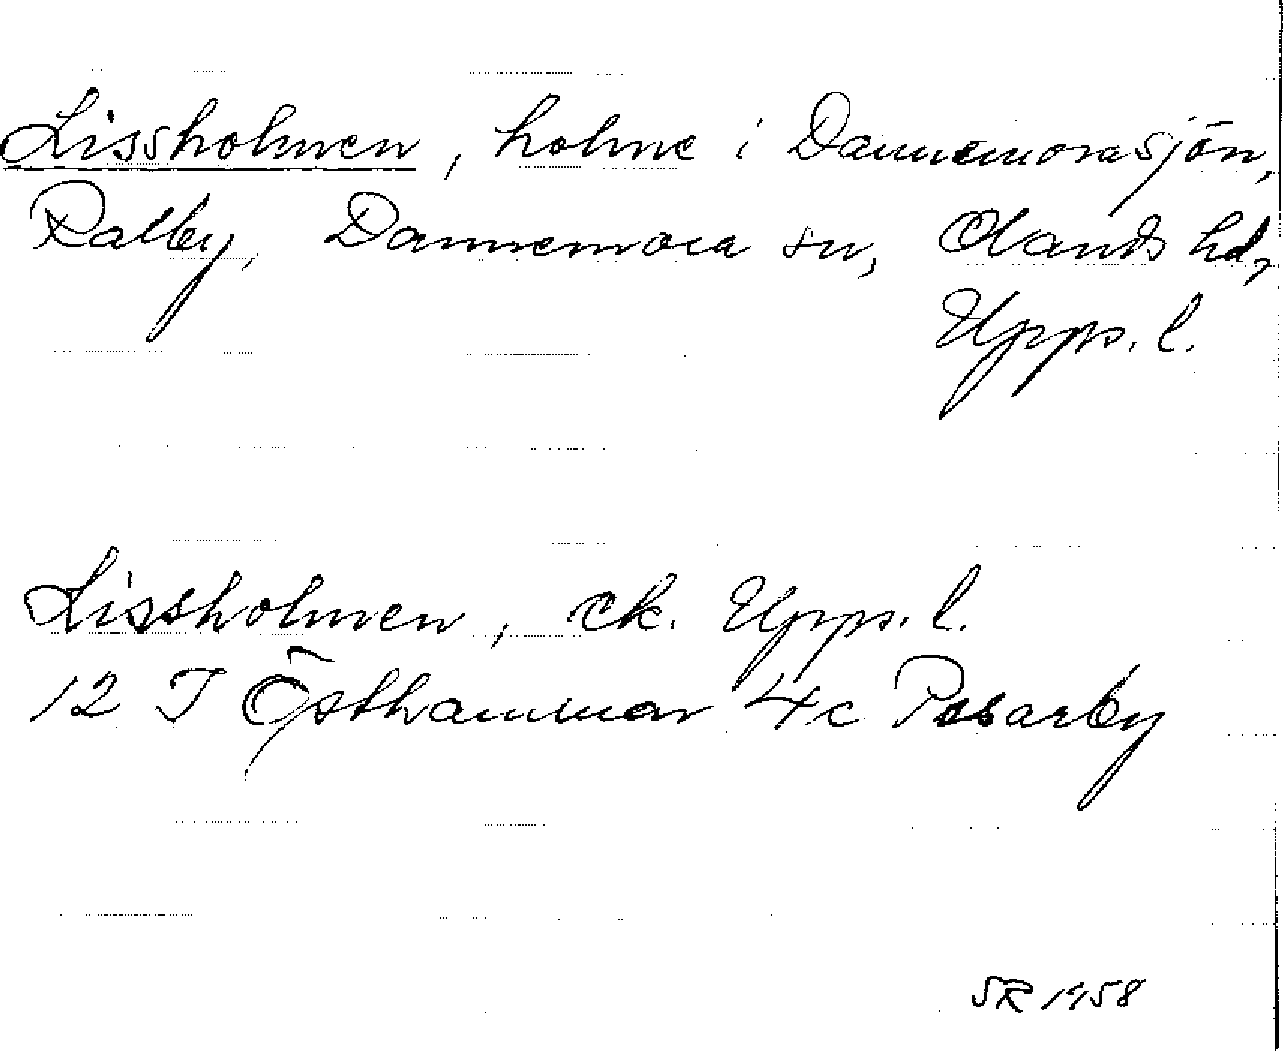 Lissholmen, holme i Dannemorasjön,
Ralby, Dannemora sn, Olands hd,
Upps. l.
Lissholmen, ek. Upps. l.
12 I Östhammar 4c Posarby
SR 1958